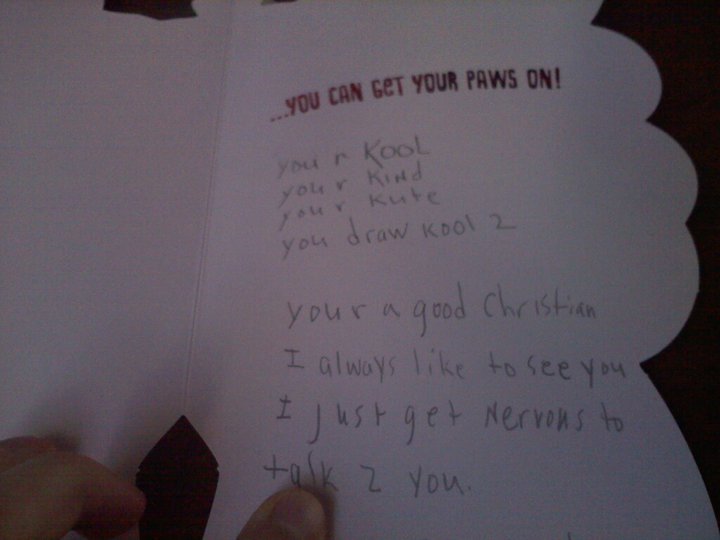 ...YOU CAN GET YOUR PAWS ON!
you r KOOL
your KIND
your Kute
you draw Kool 2
your a good Christian
I always like to see you
I just get Nervous to
talk 2 you.